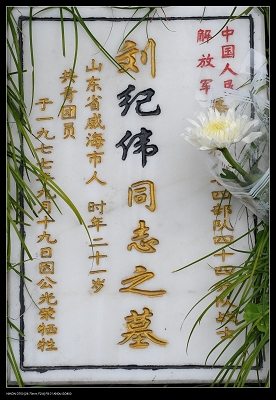 中国人民
解放军
四部队四十四
战士
刘纪伟同志之墓
山东省威海市人 时年二十一岁
共青团员
于一九七七年九月十九日因公光荣牺牲